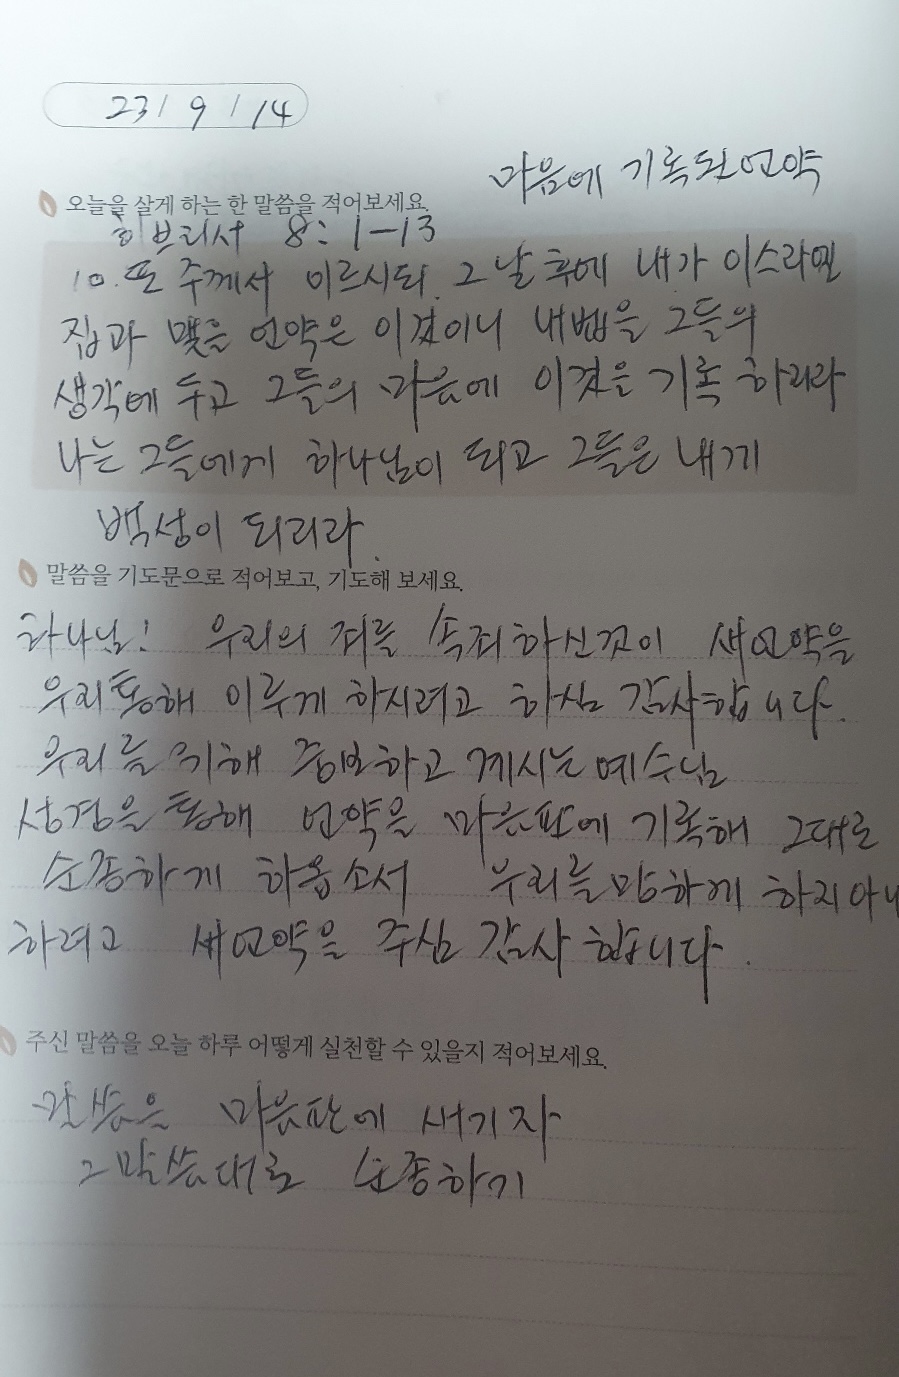 23 / 9 / 14
마음에 기록된 언약
오늘을 살게 하는 한 말씀을 적어보세요.
히브리서 8: 1-13
10. 또 주께서 이르시되 그 날 후에 내가 이스라엘
집과 맺을 언약은 이것이니 내 법을 그들의
생각에 두고 그들의 마음에 이것을 기록 하리라
나는 그들에게 하나님이 되고 그들은 내게
백성이 되리라.
말씀을 기도문으로 적어보고, 기도해 보세요.
하나님! 우리의 죄를 속죄하신것이 새언약을
우리통해 이루게 하시려고 하심 감사합니다.
우리를 위해 중보하고 계시는 예수님
성경을 통해 언약을 마음판에 기록해 그대로
순종하게 하옵소서 우리를 망하게 하지아니
하려고 새언약을 주심 감사 합니다.
주신 말씀을 오늘 하루 어떻게 실천할 수 있을지 적어보세요.
말씀을 마음판에 새기자
그 말씀대로 순종하기